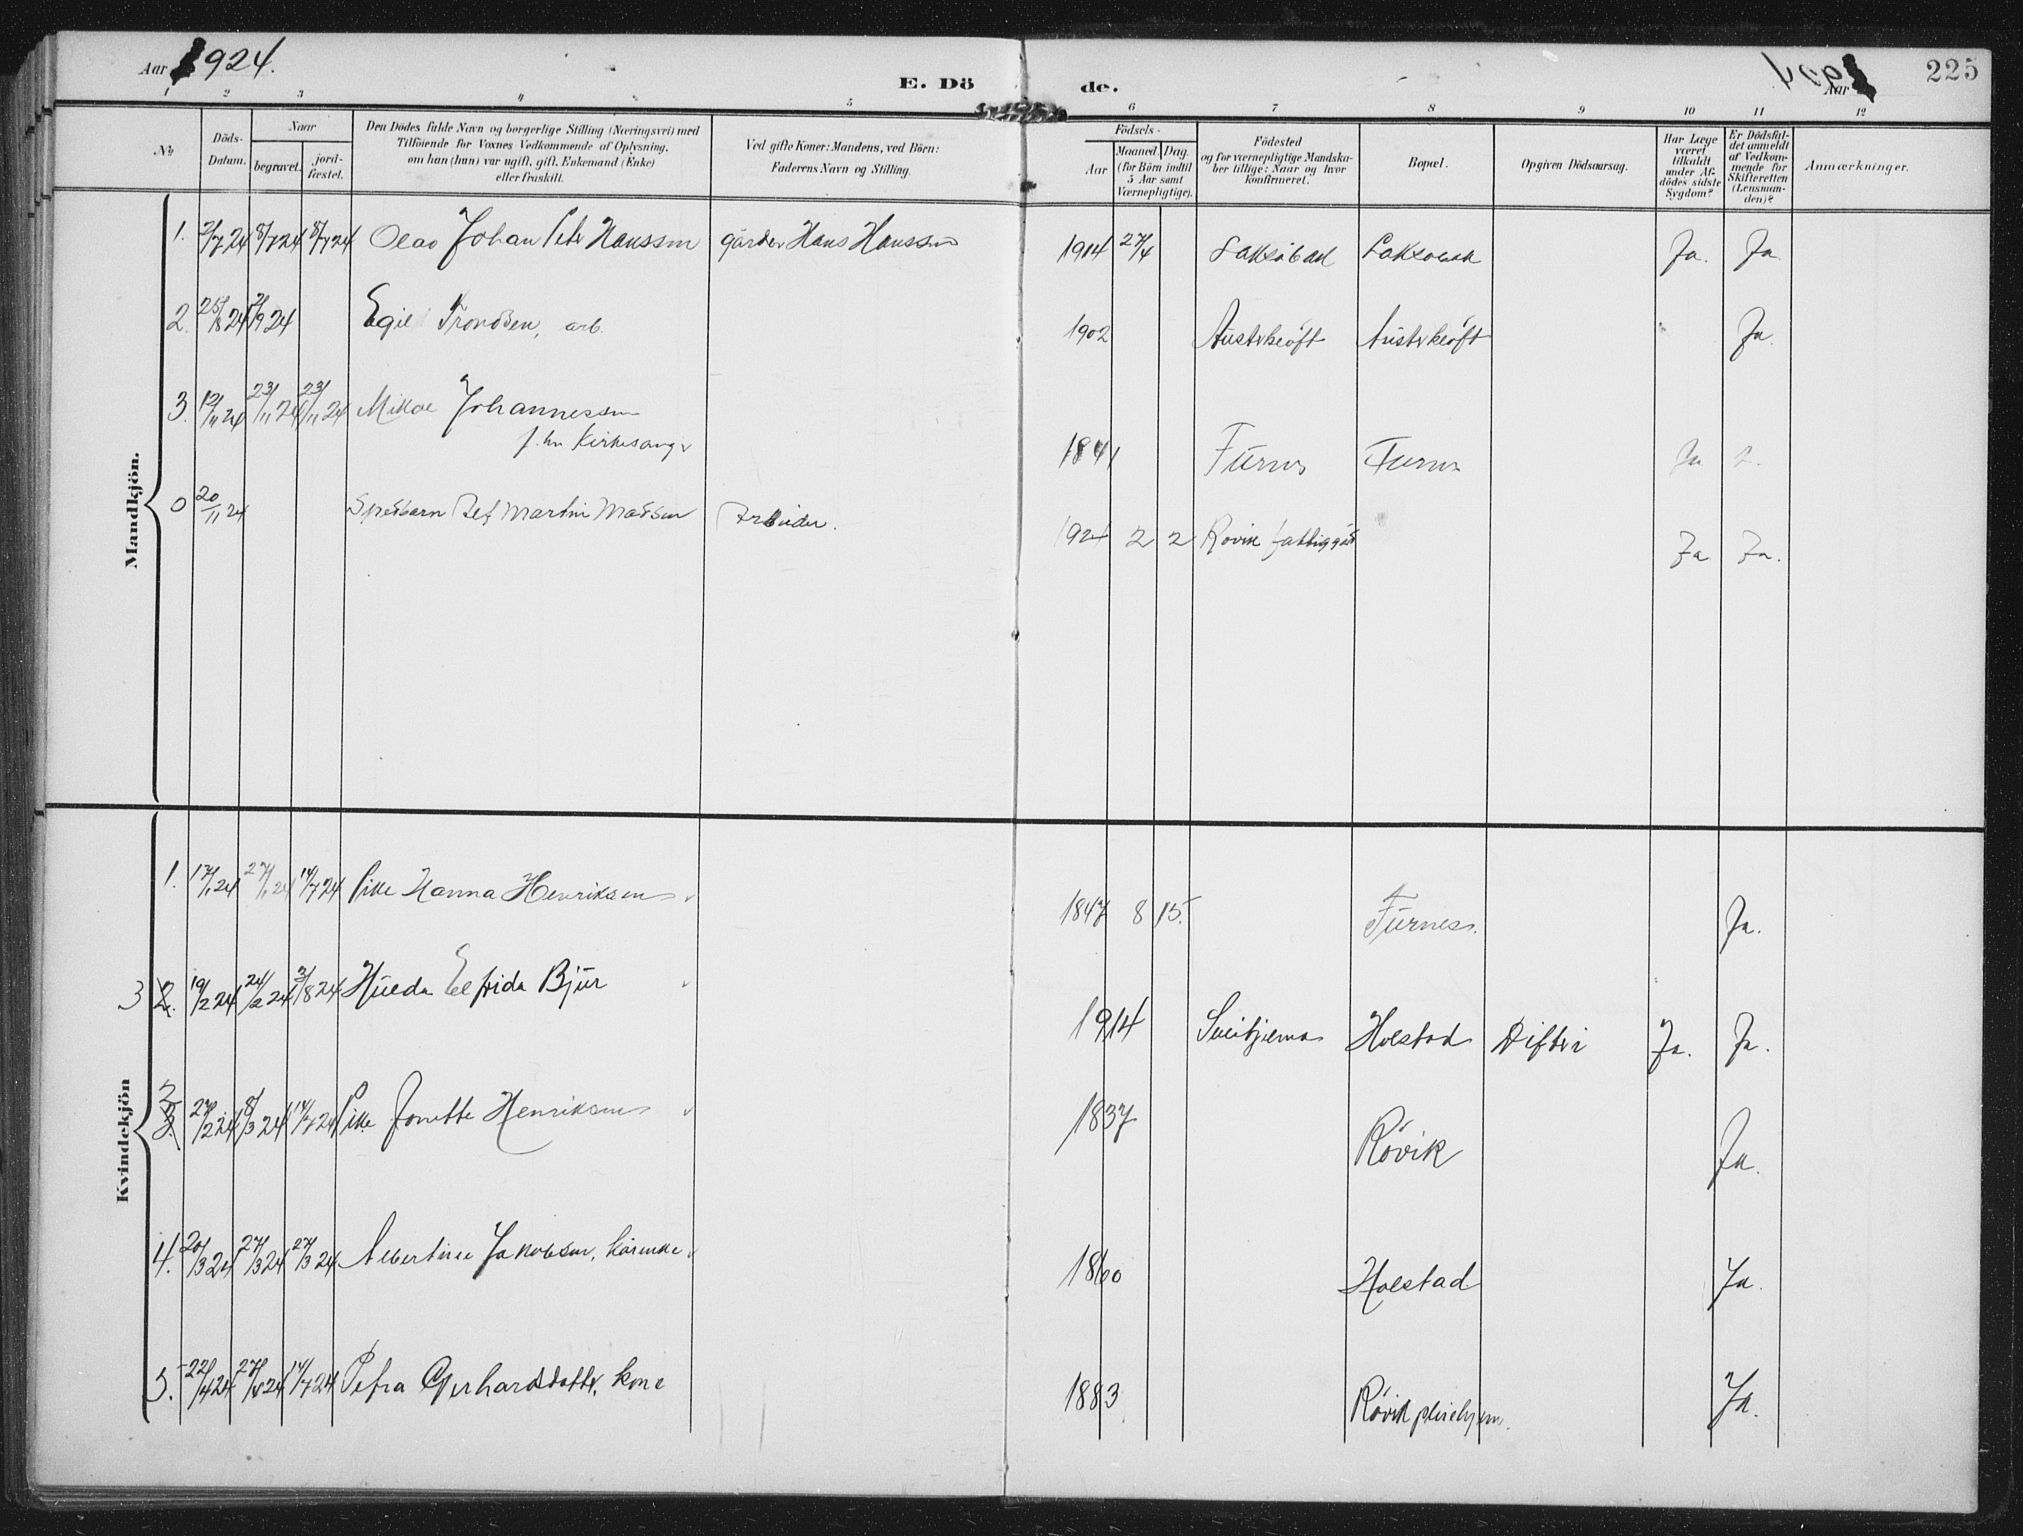 Aar 1924.
E. Döde.
Aar
225
1 2 3 4 5 6 7 8 9 10 11 12
No
Döds-Datum.
Naar
begravet.
jord-fæstet.
Den Dödes fulde Navn og borgerlige Stilling (Næringsvei) med
Tilföiende for Voxnes Vedkommende af Oplysning,
om han (hun) var ugift, gift, Enkemand (Enke)
eller fraskilt.
Ved gifte Koner: Mandens, ved Börn:
Faderens Navn og Stilling.
Födsels-
Aar
Maaned. Dag.
(for Börn indtil
5 Aar samt
Værnepligtige).
Födested
og for værnepligtige Mandska-
ber tillige: Naar og hvor
konfirmeret.
Bopæl.
Opgiven Dödsaarsag.
Har Læge
været
tilkaldt
under Af-
dödes sidste
Sygdom?
Er Dödsfal-
det anmeldt
af Vedkom-
mende for
Skifteretten
(Lensman-
den)?
Anmærkninger.
Mandkjön.
1. 2/7 24 8/7 24 8/7 24 Olav Johan Peter Hanssen gårdbr Hans Hanssen 1914 27/4 Laksåbad Laksåbak Ja. Ja
2. 25/8 24 2/9 24 Egil Trondsen, arb. 1902 Austerkløft Austerkløft Ja.
3. 12/11 24 23/11 24 23/11 24 Mikal Johannessen
f. hn Kirkesanger 1841 Furnes Furnes Ja
0 20/11 24 Spedbarn Det Martin Madsen Arbeider. 1924 2 2 Røvik fattiggård Ja Ja.
Kvindekjön
1. 17/1 24 27/1 24 14/7 24 Pike Hanna Henriksen 1847 8 15. Furness. Ja.
3 2. 19/2 24 24/2 24 3/8 24 Hulda Elfrida Bjur 1914 Sulitjelma Holstad Difteri Ja. Ja.
2 3. 27/2 24 8/3 24 14/7 24 Pike Jonette Henriksen 1837 Røvik Ja.
4. 20/3 24 27/3 24 27/3 24 Albertine Jakobsen, kårenke 1860 Holstad Ja.
5. 22/4 24 27/4 24 14/7 24 Petra Gerhardsdatter, kone 1883 Røvik pleiehjem. Ja.